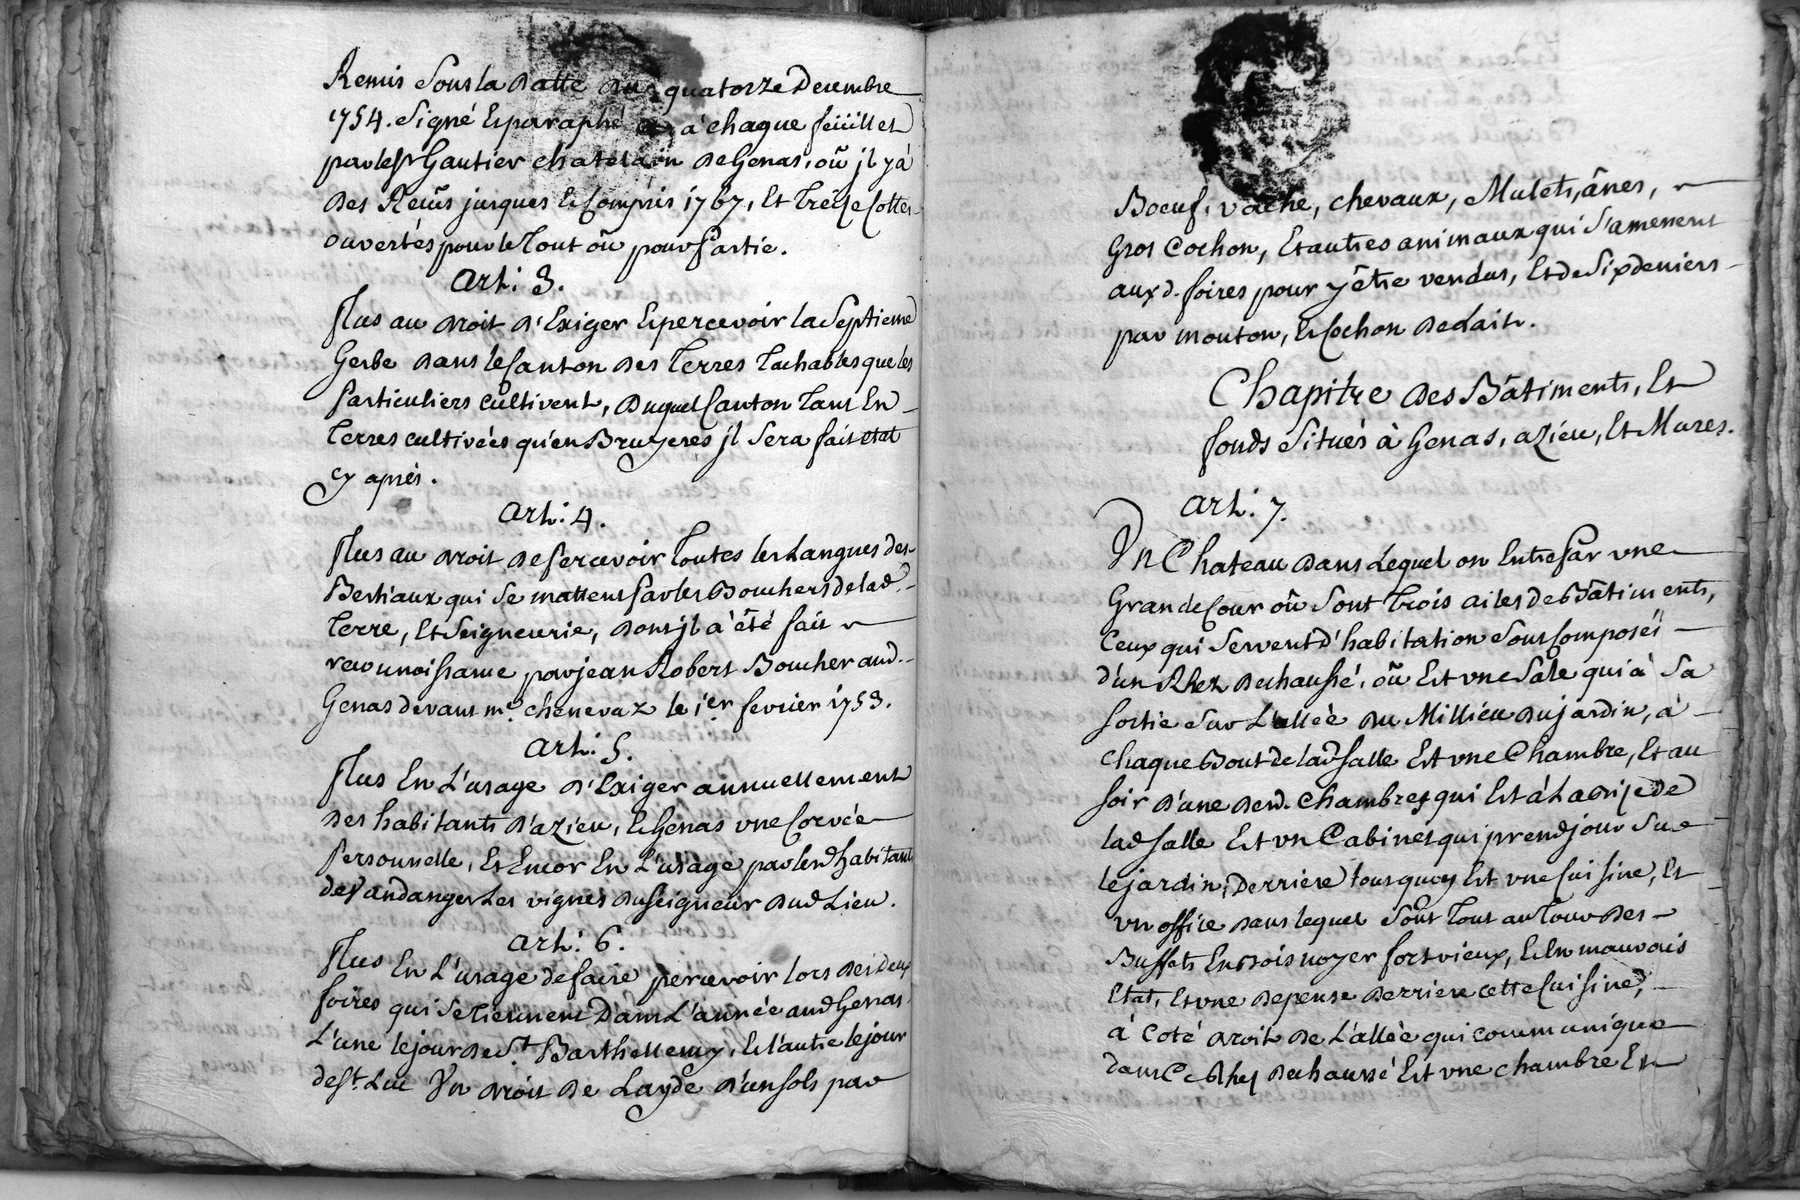 Remis sous la datte du quatorze Decembre
1754. signé Et paraphé à chaque feüillet
par le sr Gautier chatelain de Genas, oû jl y à
des Reçûs jusques Et Compris 1767, Et Treize Cottes
ouvertés pour le Tout oû pour Partie.
Art: 3.
Plus au droit d'Exiger Et percevoir la Septieme
Gerbe dans le Canton des Terres Tachables que les
Particuliers cultivent, duquel Canton Tant En
Terres cultivées qu'en Bruyeres jl sera fait etat
cy aprés.
Art: 4.
Plus au droit de Percevoir Toutes les Langues des
Bestiaux qui se mattent Par les Bouchers de lad.
Terre, Et Seigneurie, dont jl à êté fait
reconnoissance par jean Robert Boucher aud.
Genas devant me. chenevaz le 1er fevrier 1753.
Art: 5.
Plus En L'usage d'Exiger annuellement
des habitants d'azieu, Et Genas une Corvée
Personnelle, Et Encor En L'usage par lesd habitants
de Vandanger Les vignes du Seigneur dud Lieu.
Art: 6.
Plus En L'usage de faire percevoir lors des deux
foires qui se Tiennent Dans L'année aud Genas
L'une le jour de St Barthellemy, Et l'autre le jour
de St Luc Un droit de Layde d'un sols par
Boeuf, vache, chevaux, Mulets, ânes,
Gros Cochon, Et autres animaux qui s'amenent
auxd. foires pour y être vendus, Et de Six deniers
par mouton, Et Cochon de Lait.
Chapitre des Bâtiments, Et
fonds situés à Genas, azieu, Et Mures.
Art: 7.
Un Chateau dans Lequel on Entre Par une
Grande Cour oû sont Trois ailes de Bâtiments,
Ceux qui servent d'habitation sont Composés
d'un Rhez de chaussé, oû Est une Sale qui à Sa
sortie sur L'allée du Millieu du jardin, à
chaque Bout de lad salle Est une Chambre, Et au
soir d'une desd. chambres qui Est à La Bize de
lad salle Est un Cabinet qui prend jour sur
le jardin; Derriere tous quoy Est une Cuisine, Et
un office dans lequel sont Tout au Tour des
Buffets En bois noyer fort vieux, Et En mauvois
Etat, Et une depense derriere cette Cuisine,
à Coté droit de L'allée qui communique
dans Ce Rhez de chaussé Est une chambre En